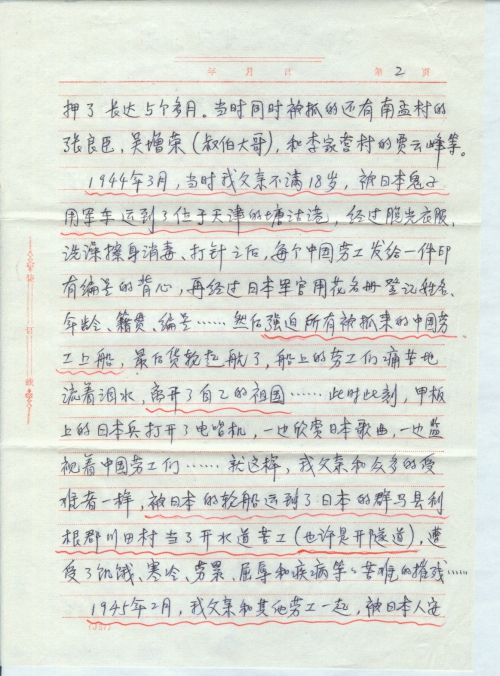 年 月 日 第 2 页
押了长达5个多月。当时同时被抓的还有南孟村的
张良臣,吴增荣(叔伯大哥),和李家营村的贾云峰等。
1944年3月,当时我父亲不满18岁,被日本鬼子
用军车运到了位于天津的塘沽港,经过脱光衣服、
洗澡擦身消毒、打针之后,每个中国劳工发给一件印
有编号的背心,再经过日本军官用花名册登记姓名、
年龄、籍贯、编号……然后强迫所有被抓来的中国劳
工上船,最后货轮起航了,船上的劳工们痛苦地
流着泪水,离开了自己的祖国……此时此刻,甲板
上的日本兵打开了电唱机,一边欣赏日本歌曲,一边监
视着中国劳工们……就这样,我父亲和众多的受
难者一样,被日本的轮船运到了日本的群马县利
根郡川田村当了开水道苦工(也许是开隧道),遭
受了饥饿、寒冷、劳累、屈辱和疾病等々苦难的摧残……
1945年2月,我父亲和其他劳工一起,被日本人从
装 订 线